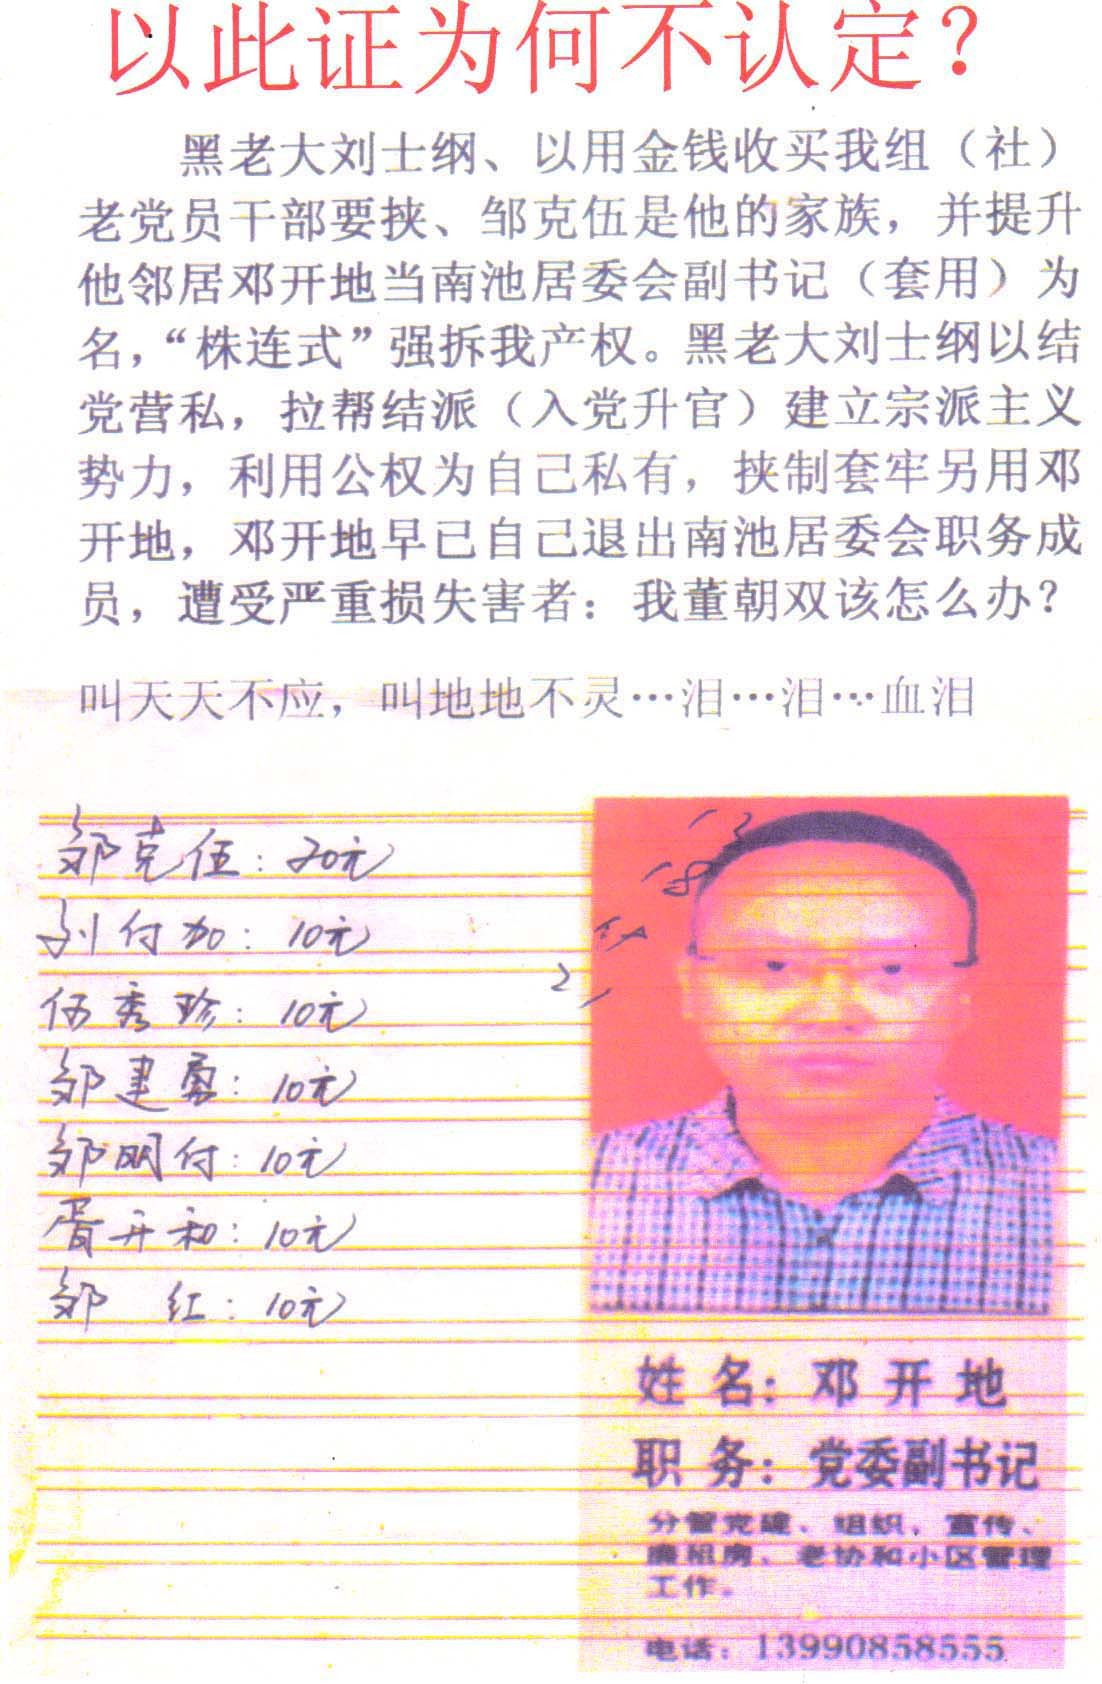 以此证为何不认定？
黑老大刘士纲、以用金钱收买我组（社）
老党员干部要挟、邹克伍是他的家族，并提升
他邻居邓开地当南池居委会副书记（套用）为
名，“株连式”强拆我产权。黑老大刘士纲以结
党营私，拉帮结派（入党升官）建立宗派主义
势力，利用公权为自己私有，挟制套牢另用邓
开地，邓开地早已自己退出南池居委会职务成
员，遭受严重损失害者：我董朝双该怎么办？
叫天天不应，叫地地不灵…泪…泪…血泪
邹克伍：20元
刘付加：10元
伍秀珍：10元
邹建勇：10元
邹明付：10元
胥开和：10元
邹 红：10元
姓 名：邓 开 地
职 务：党委副书记
分管党建、组织、宣传、
廉租房、老协和小区管理
工作。
电话：13990858555